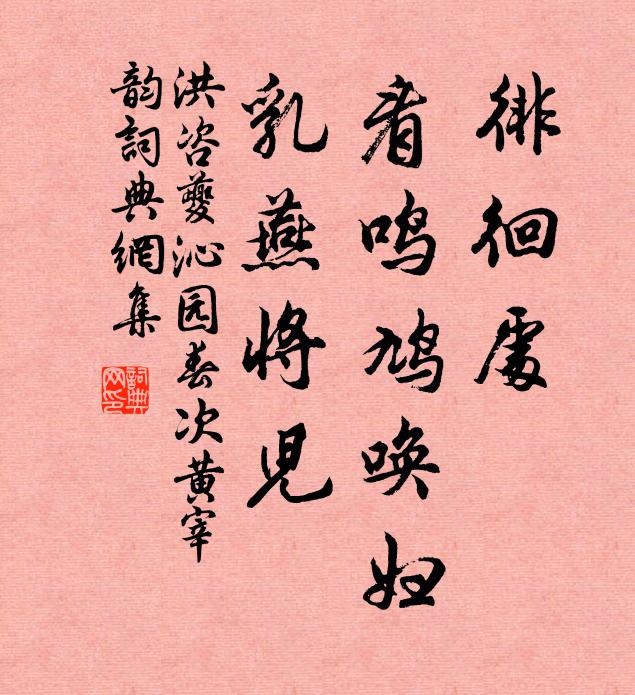 徘徊處
看鸣鸠唤妇
乳燕将児
洪咨夔沁园春次黄宰
韵詞典網集
詞典网印